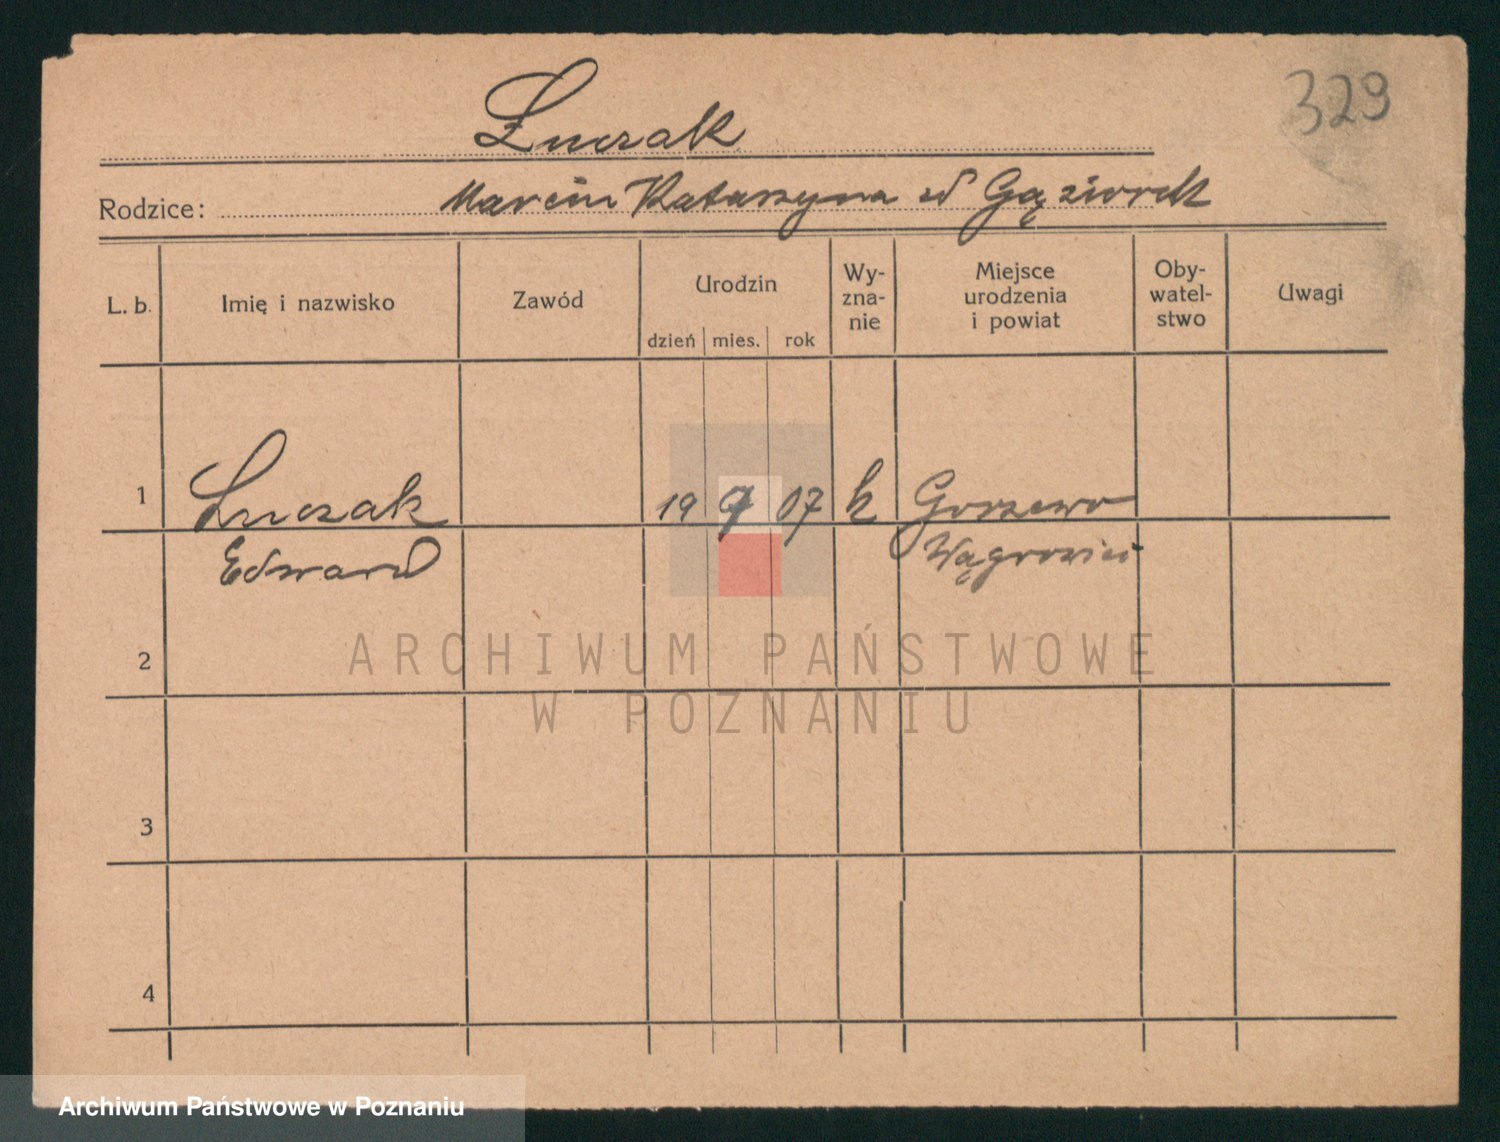 329
Łuczak
Rodzice: Marcin Katarzyna zd Gąziorek
L. b. Imię i nazwisko Zawód Urodzin dzień mies. rok Wy-zna-nie Miejsce urodzenia i powiat Oby-watel-stwo Uwagi
1 Łuczak 19 9 07 k Gorzewo
Edward Wągrowiec
2
ARCHIWUM PAŃSTWOWE
W POZNANIU
3
4
Archiwum Państwowe w Poznaniu